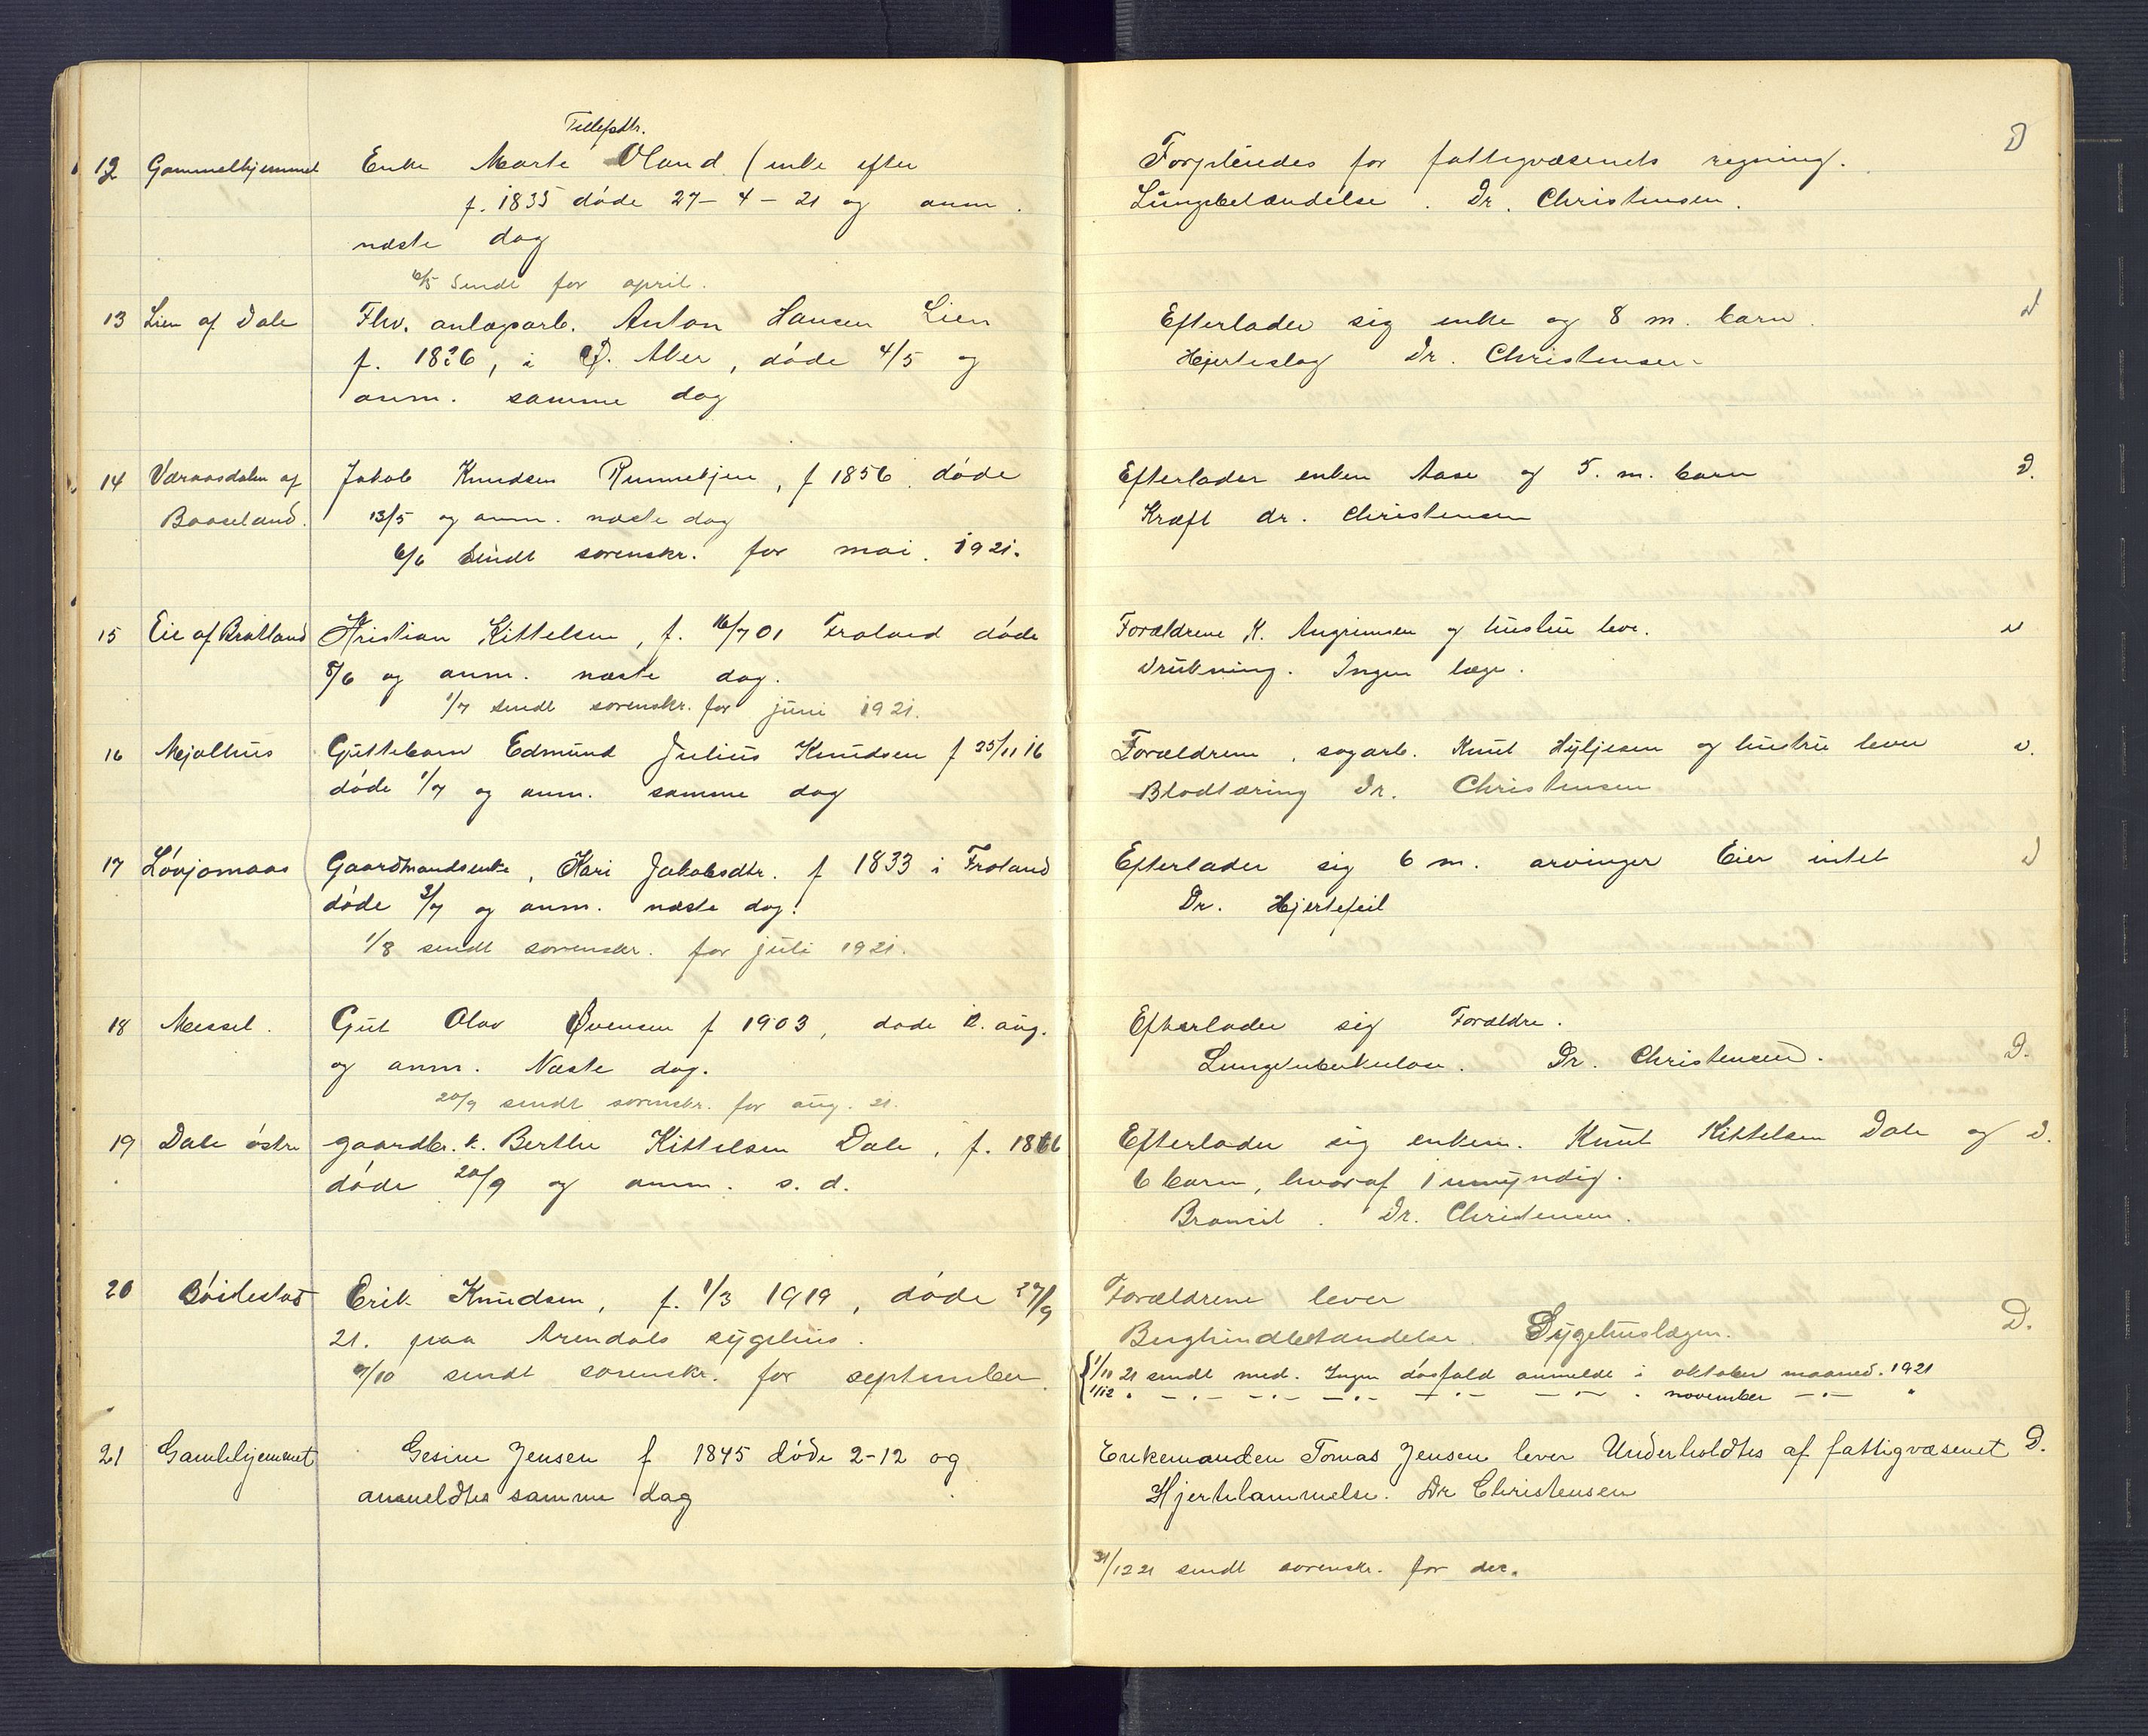 Tellefsdtr.
12 Gammelhjemmet Enke Marte Oland (enke efter
f. 1835 døde 27-4-21 og anm.
næste dag
6/5 sendt for april.
Forpleiedes for fattigvæsenets regning. D
Lungebetændelse. Dr. Christensen.
13 Lien af Dale Fhv. anlægsarb. Anton Hansen Lien
f. 1826, i Ø. Aker, døde 4/5 og
anm. samme dag
Efterlader sig enke og 8 m. barn. D
Hjerteslag Dr. Christensen
14 af Jakob Knudsen f 1856 døde
Booseland. 13/5 og anm. næste dag
6/6 sendt sorenskr. for mai 1921.
Efterlader enken Aase og 5. m. barn D.
Kræft dr. Christensen
15 Eie af Bratland Kristian Kittelsen, f. 16/7 01 Froland døde
8/6 og anm. næste dag.
1/7 sendt sorenskr. for juni 1921.
Forældrene K. Angrimsen og hustru leve. D
Drukning. Ingen læge.
16 Mjølhus Guttebarn Edmund Julius Knudsen f 25/11 16
døde 1/7 og anm. samme dag
Forældrene, sagarb. Knut og hustru lever D.
Blodtæring Dr. Christensen
17 Løvjomaas Gaardmandsenke, Kari Jakobsdtr. f 1833 i Froland
døde 3/7 og anm. næste dag.
1/8 sendt sorenskr. for juli 1921.
Efterlader sig 6 m. arvinger Eier intet D
Dr. Hjertefeil
18 Messel. Gut Olav Øvensen f 1903, døde 12. aug.
og anm. Næste dag.
20/9 sendt sorenskr. for aug. 21.
Efterlader sig Forældre.
Lungetuberkulose. Dr. Christensen. D.
19 Dale østre gaardbr. k. Berthe Kittelsen Dale, f. 1866
døde 20/9 og anm. s. d.
Efterlader sig enkem. Knut Kittelsen Dale og D.
6 barn, hvoraf 1 umyndig.
Dr. Christensen.
20 Bøilestad Erik Knudsen, f. 1/3 1919, døde 27/9
21. paa Arendals sygehus.
7/10 sendt sorenskr. for september.
Forældrene lever
Sygehuslægen. D.
1/11 21 sendt med. Ingen dødsfald anmeldt i oktober maaned. 1921
1/12 " -"- -"- -"- -"- -"- " november -"- "
21 Gamlehjemmet Gesine Jensen f 1845 døde 2-12 og
anmeldtes samme dag
Enkemanden Tomas Jensen lever Underholdtes af fattigvæsenet D.
Hjertelammelse. Dr Christensen
31/12 21 sendt sorenskr. for des.